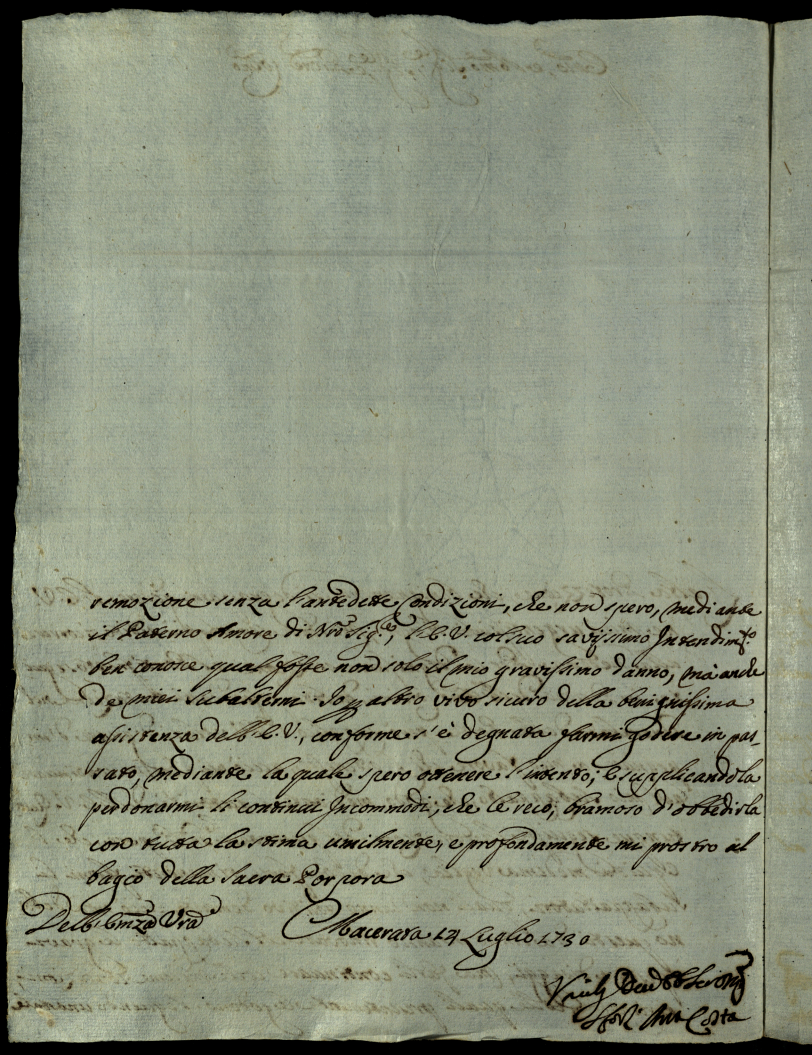 remozione senza l'antedette Condizioni, che non spero, mediante
il Paterno Amore di Nrõ Sig.re, l'E.V. col suo savissimo Intendim.to
ben conosce qual fosse non solo il mio gravissimo danno, mà anche
de miei subalterni. Io p altro vivo sicuro della benignissima
assistenza dell'E.V., conforme s'è degnata farmi godere in pas-
sato, mediante la quale spero ottenere l'intento; e supplicandola
perdonarmi li continui Incommodi, che le reco, bramoso d'obbedirla
con tutta la stima umilmente, e profondamente mi prostro al
bagio della Sacra Porpora
Dell'Emza Vrã Macerata 14 Luglio 1730
Costa